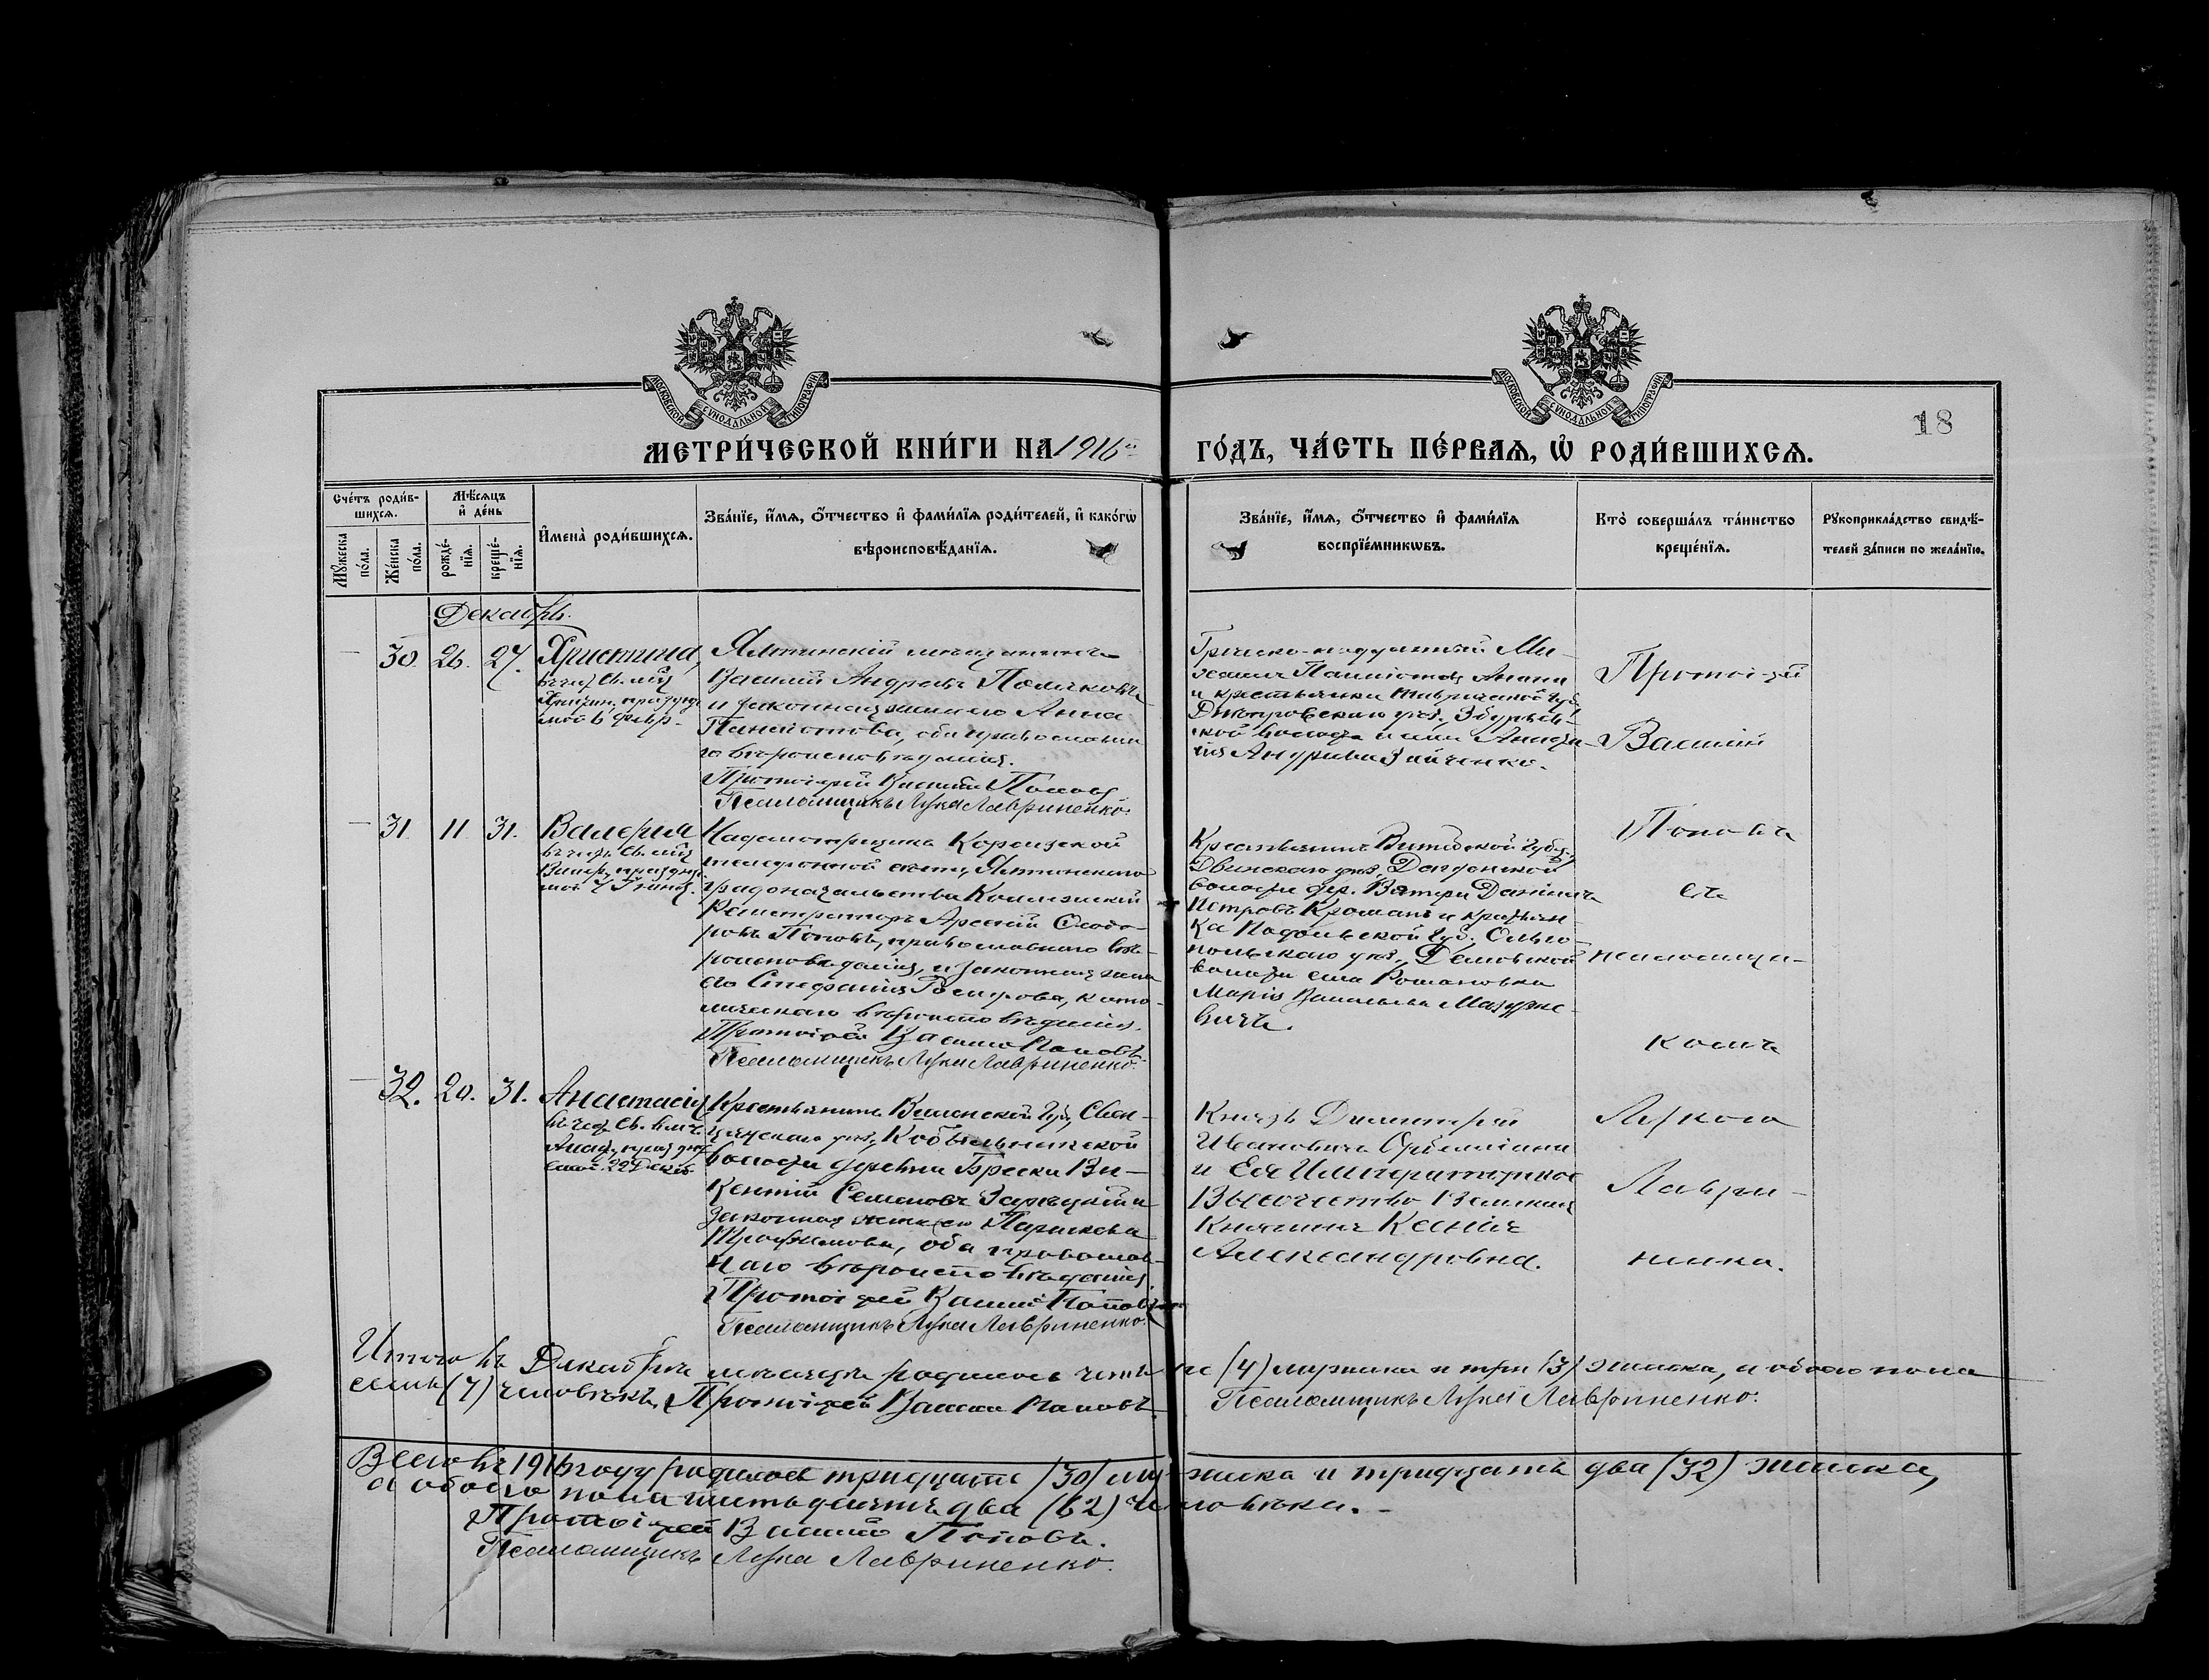 МОСКОВСКОЙ СѴНОДАЛЬНОЙ ТИПОГРАФІИ
МОСКОВСКОЙ СѴНОДАЛЬНОЙ ТИПОГРАФІИ
18
МЕТРИ́ЧЕСКОЙ КНИ́ГИ НА 1916й ГО́ДЪ, ЧА́СТЬ ПЕ́РВАѦ, Ѡ РОДИ́ВШИХСѦ.
Сче́тъ роди́в-
шихсѧ.
Мꙋ́жеска по́ла.
Же́нска по́ла.
Мѣ́сѧцъ
и҆ де́нь
рожде́-
нїѧ.
креще́-
нїѧ.
И҆мена̀ роди́вшихсѧ.
Зва́нїе, и҆́мѧ, ѻ҆́тчество и҆ фами́лїѧ роди́телей, и҆ како́гѡ
вѣроисповѣ́данїѧ.
Зва́нїе, и҆́мѧ, ѻ҆́тчество и҆ фами́лїѧ
воспрїе́мникѡвъ.
Кто̀ соверша́лъ та́инство
креще́нїѧ.
Рꙋкоприкла́дство свидѣ́-
телей за́писи по жела́нїю.
Декабрь.
30. 26. 27. Христина,
въ честь св. мц
Христин, празднуе
мой 6 февр.
Ялтинскій мѣщанинъ
Василій Андреевъ Поляковъ
и законная жена его Анна
Панаіотова, оба православна
го вѣроисповѣданія.
Протоіерей Василій Поповъ
Псаломщикъ Лука Лавриненко.
Греческо-подданный Ми-
хаилъ Панаіотовъ
и крестьянка Таврической губ.
Днѣпровскаго уѣз., Збурьев-
ской волости
Андреева Зайченко.
31. 11. 31. Валерія
въ честь св. мц
Валер, праздну
мой 7 Іюня.
Надсмотрщикъ Кореизской
телефонной сѣти, Ялтинскаго
градоначальства Коллежскій
Регистраторъ Арсеній Ѳеодо-
ровъ Поповъ, православнаго вѣ-
роисповѣданія, и законная жена
его Стефанія, като-
лическаго вѣроисповѣданія.
Протоіерей Василій Поповъ.
Псаломщикъ Лука Лавриненко.
Крестьянинъ Витебской губ.,
Двинскаго уѣз.,
волости дер.
Петровъ и крестьян-
ка Подольской губ. Ольго-
польскаго уѣз.,
волости села Романовка
Марія Васильева Мазурке-
вичъ.
32. 20. 31. Анастасія
въ честь св. влмч.
Анаст, праздну
емой 22 Декаб.
Крестьянинъ Виленской губ., Свен-
цянскаго уѣз., Кобыльникской
волости деревни Брески Ви-
кентій Семеновъ Зарѣцкій и
законная жена его Параскева
Трофимова, оба православ-
наго вѣроисповѣданія.
Протоіерей Василій Поповъ
Псаломщикъ Лука Лавриненко.
Князь Димитрій
Ивановичъ Орбеліани
и Ея Императорское
Высочество Великая
Княгиня Ксенія
Александровна.
Протоіерей
Василій
Поповъ
съ
псаломщи-
комъ
Лукою
Лаври-
ненко.
Итого въ Декабрѣ мѣсяцѣ родилось четыре (4) мужска и три (3) женска, а обоего пола
семь (7) человѣкъ. Протоіерей Василій Поповъ. Псаломщикъ Лука Лавриненко.
Всего въ 1916 году родилось тридцать (30) мужска и тридцать два (32) женска,
а обоего пола шестьдесятъ два (62) человѣка. -
Протоіерей Василій Поповъ.
Псаломщикъ Лука Лавриненко.